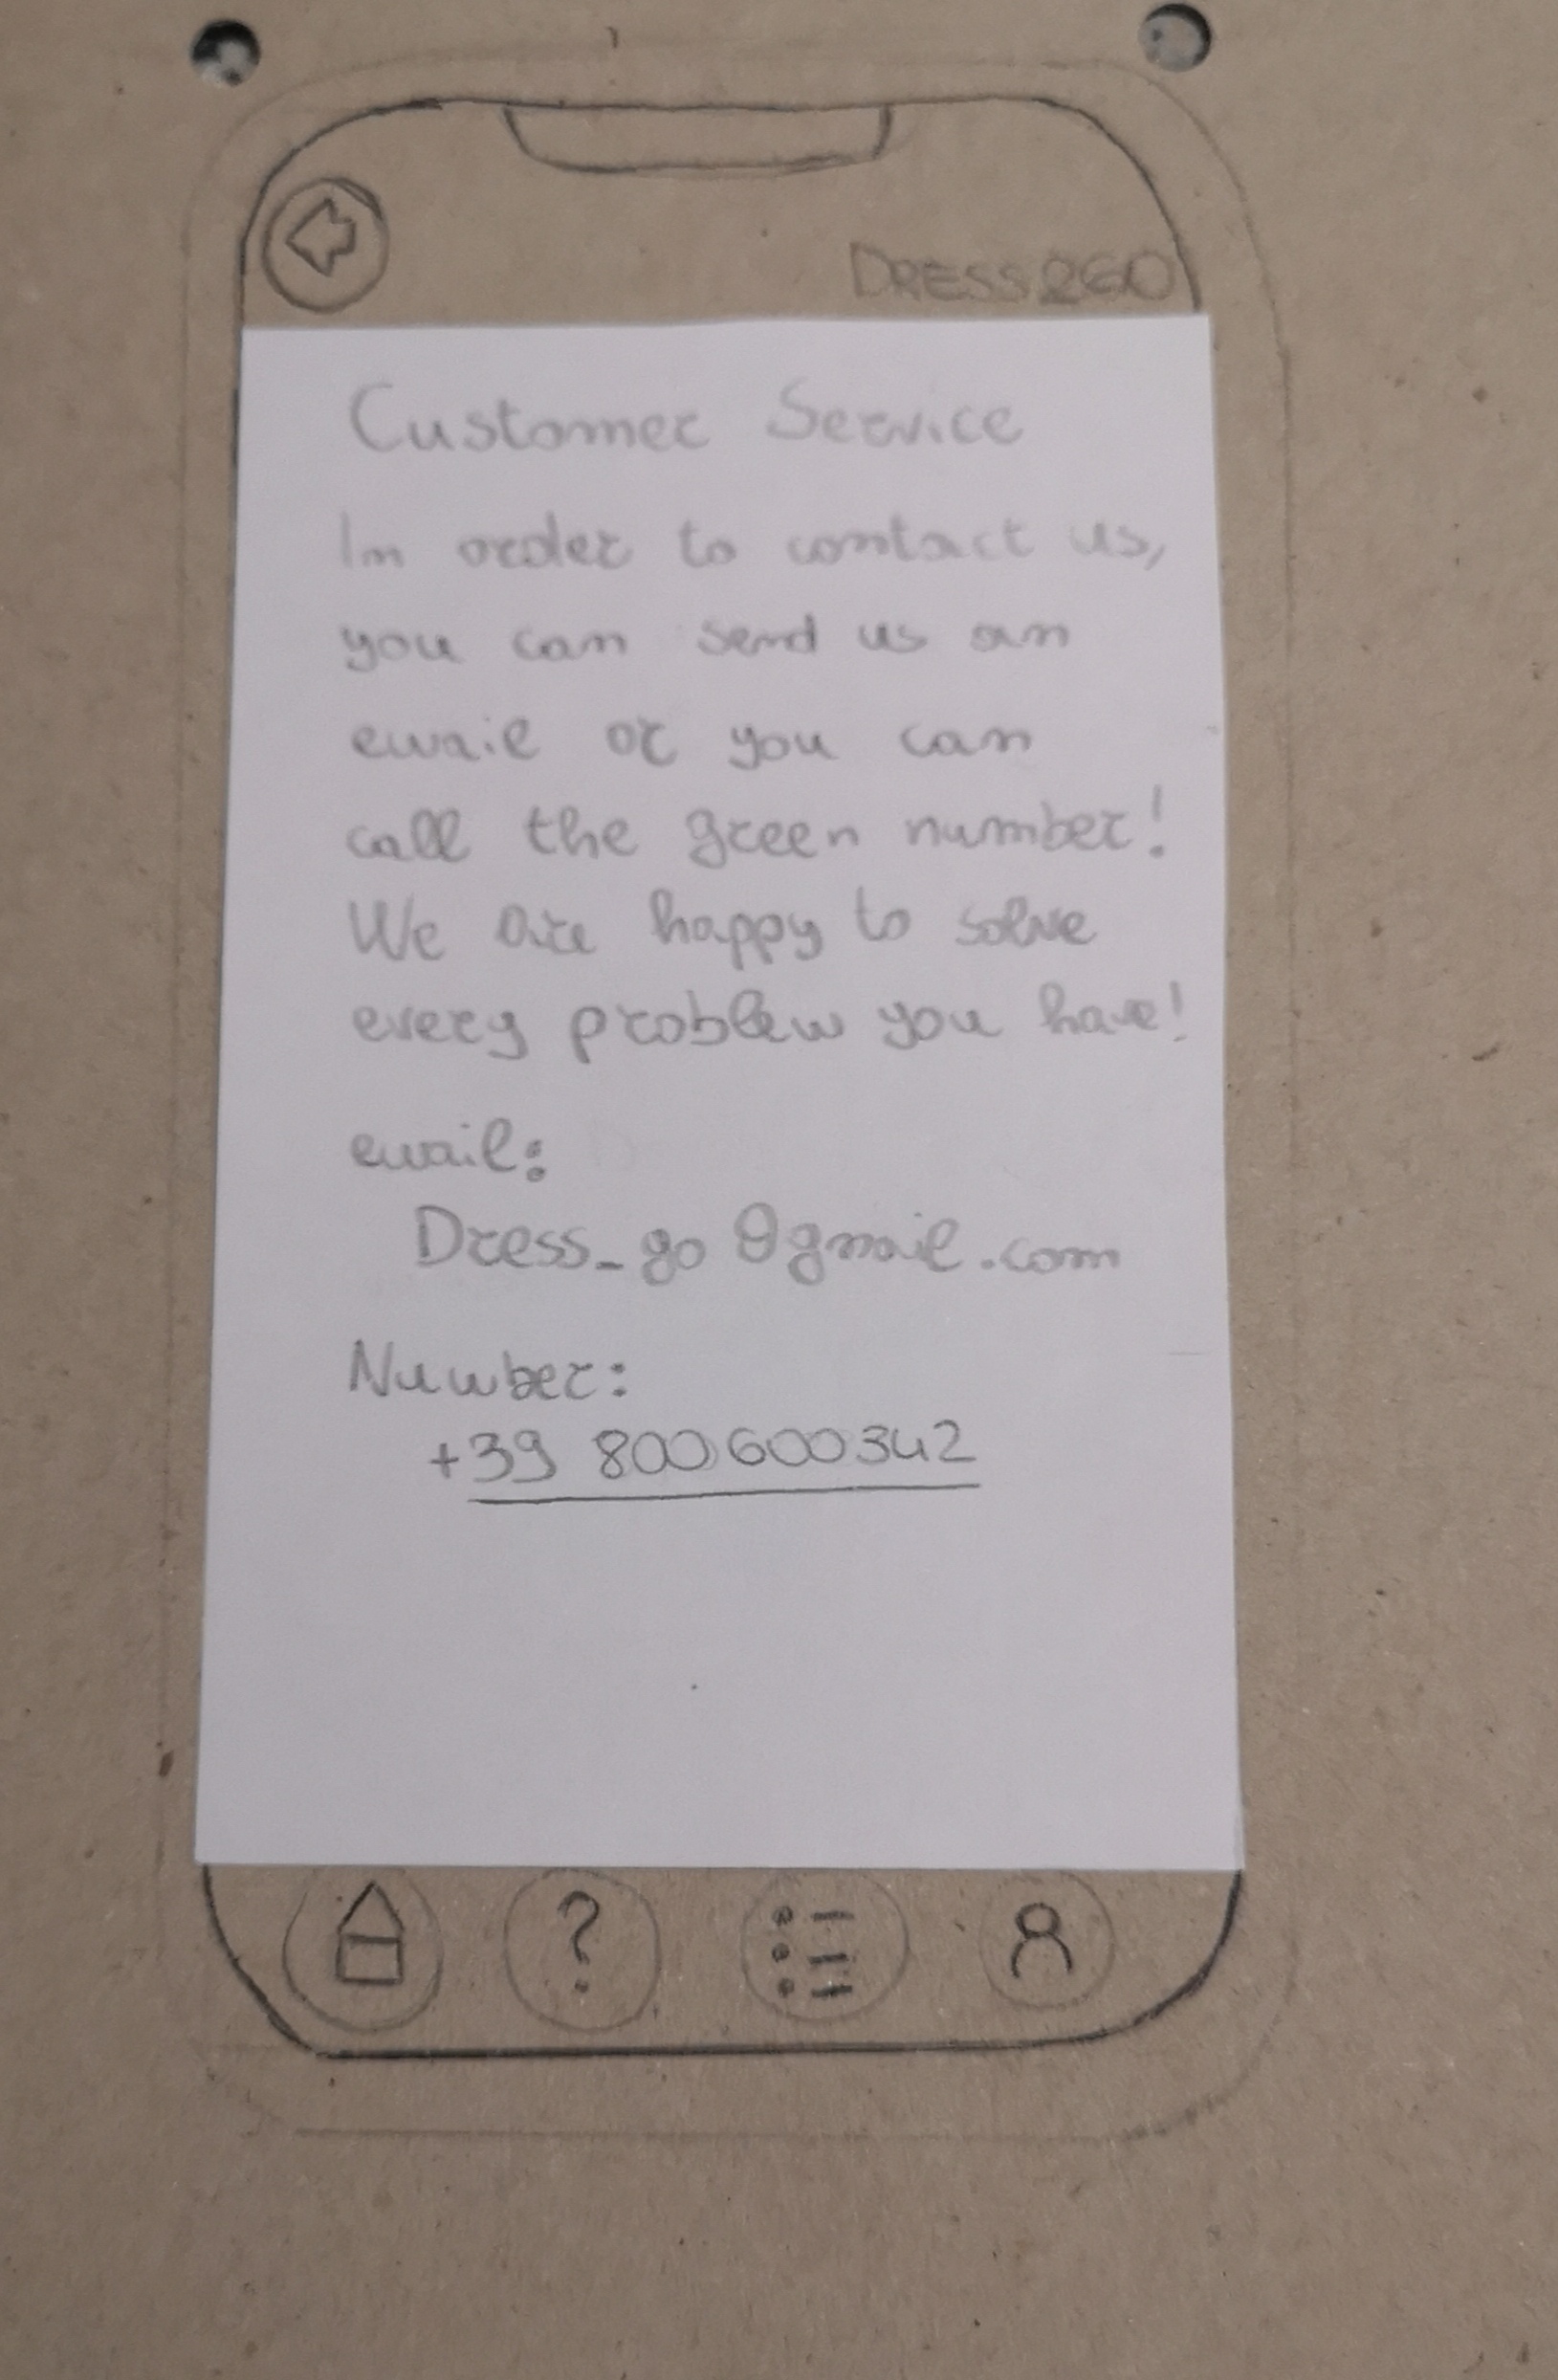 DRESS2GO
Customer Service
In order to contact us,
you can send us an
email or you can
call the green number!
We are happy to solve
every problem you have!
email:
Dress_go@gmail.com
Number:
+39 800600342
?